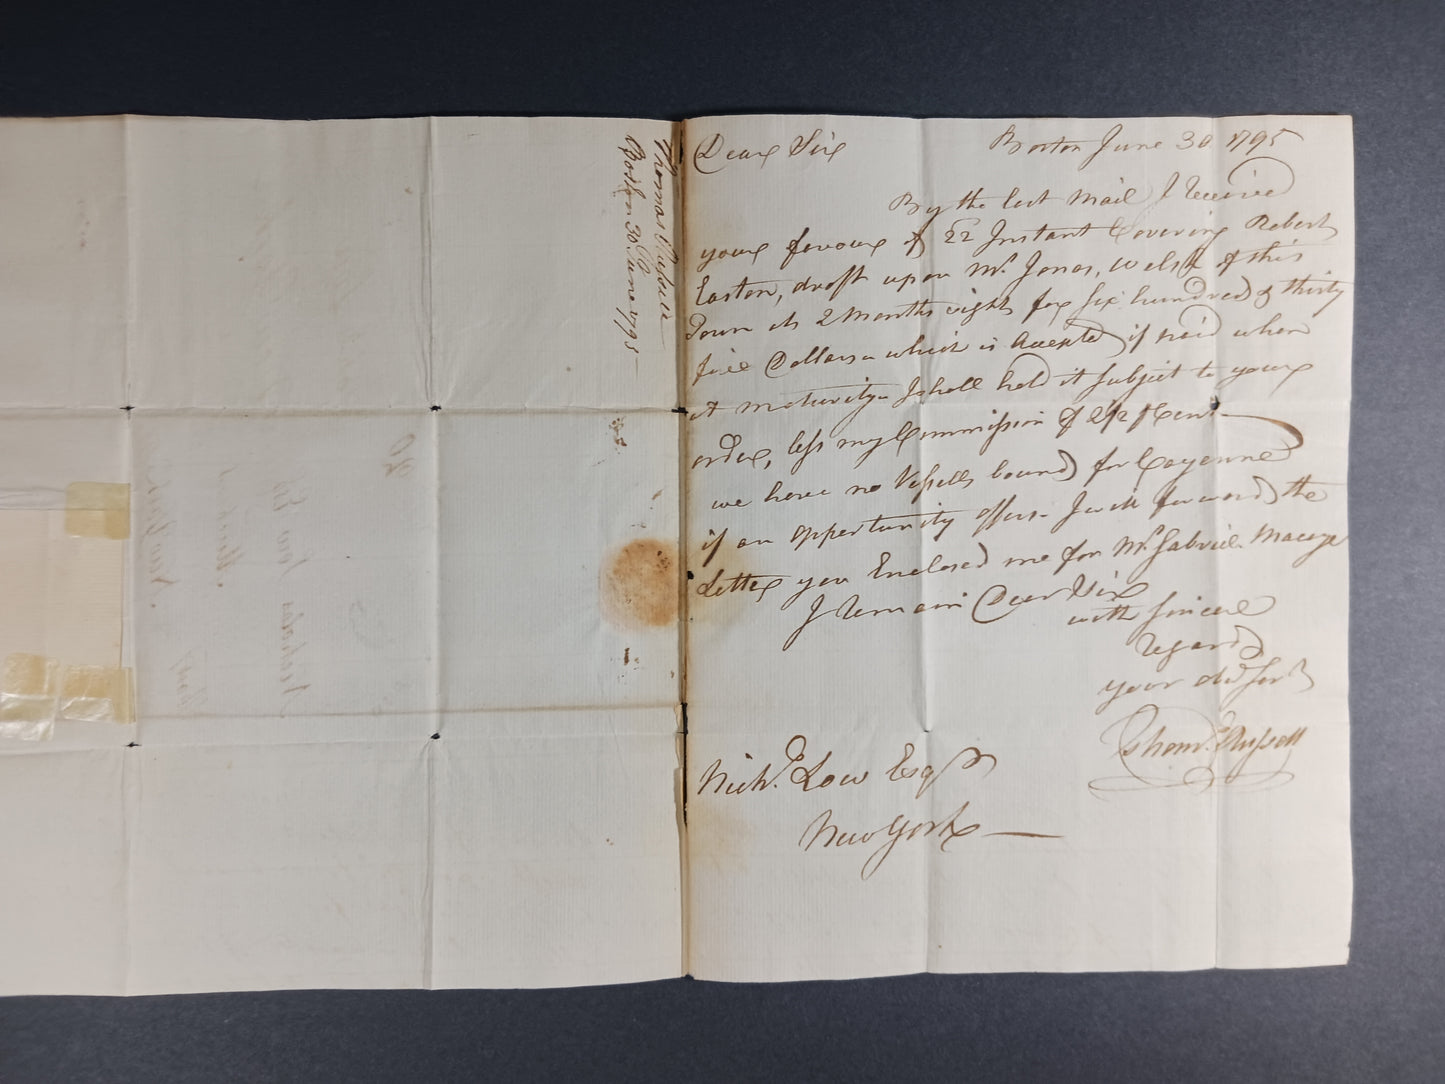 Dear Sir
Boston June 30. 1795
By the last Mail I received
your favour of 22 Instant Covering Robert
Easton, draft upon Mr. Jonas, Welsh of this
Town at 2 Months sight for six hundred & thirty
five Dollars which is Accepted, if paid when
at maturity I shall hold it subject to your
order, less my Commission of 2 1/2 ⅌ Cent
we have no Vessells bound for Cayenne
if an opportunity offers I will forward the
Letter you Enclosed me for Mr. Gabriel
I remain Dear Sir
with sincere
regard
your obdt Servt
Thoms. Russell
Nichs. Low Esqr
New York
Thomas Russell
Boston 30. June 1795
20
Nicholas Low Esq
New York